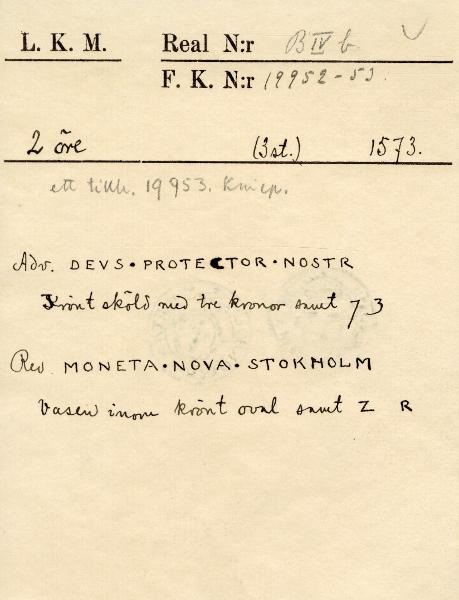 L. K. M. Real N:r B IV b
F. K. N:r 19952-53.
2 öre (3st.) 1573.
ett tillh. 19953. Kniep.
Adv. DEVS • PROTECTOR • NOSTR
Krönt sköld med tre kronor samt 73
Rev. MONETA • NOVA • STOKHOLM
Vasen inom krönt oval samt Z R